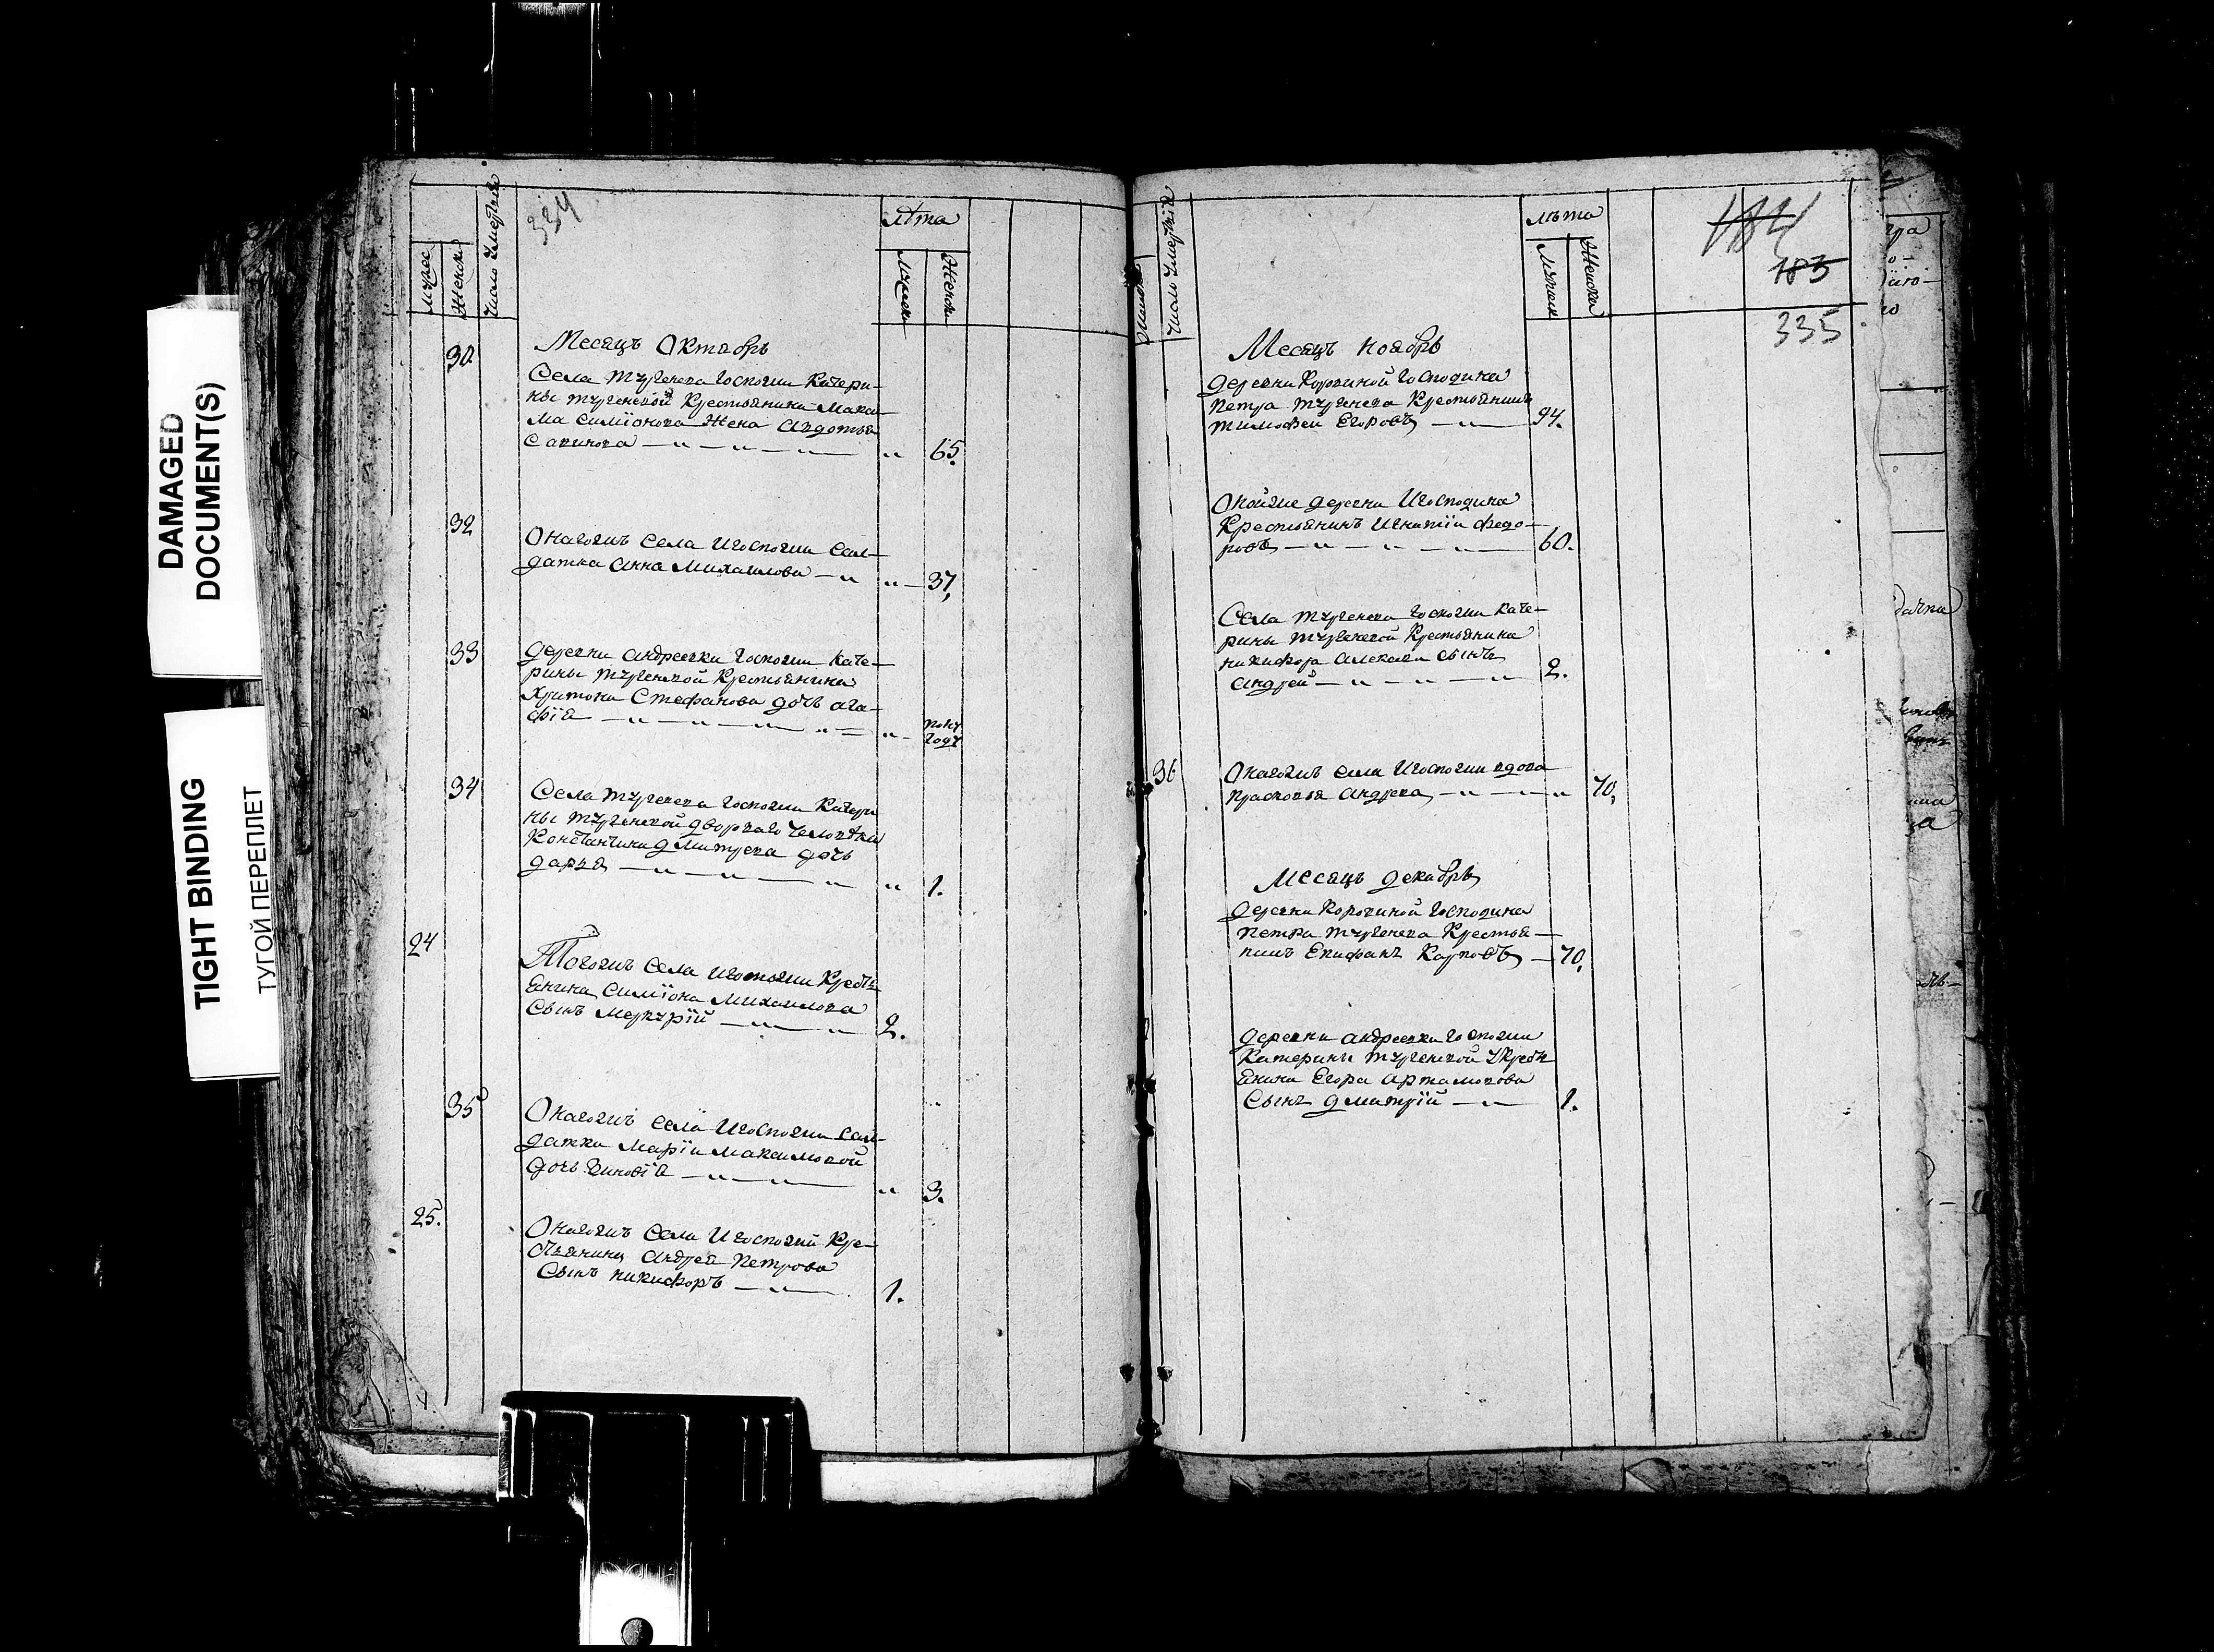 DAMAGED
DOCUMENT(S)
TIGHT BINDING
ТУГОЙ ПЕРЕПЛЕТ
334
Женски
Число умерших
лѣта
Мужски
Женски
Месяцъ Октябрь
30
Села Тургенева Госпожи Катери-
ны Тургеневой Крестьянина Макси
ма Симіонова Жена Авдотья
Савинова
65.
32
Оногожъ Села И Госпожи Сол-
датка Анна Михаилова
37,
33
деревни Андреевки Госпожи Кате-
рины Тургеневой Крестьянина
Харитона Стефанова дочь Ага-
фія
полу
году
34
Села Тургенева Госпожи Катери
ны Тургеневой дворваго человѣка
Константина дмитрева дочь
дарья
1.
24
Тогожъ Села И Госпожи Крестъ
янина Симіона Михаилова
Сынъ Меркурій
2.
35
Оногожъ Села И Госпожи Сол-
датки Маріи Максимовой
дочь Зиновія
3.
25.
Оногожъ Села И Госпожи Кре-
стьянина Андрея Петрова
Сынъ никифоръ
1.
Число умерших
лѣта
Мужски
Женски
184
183
335
Месяцъ ноябрь
деревни Коровиной Господина
Петра Тургенева Крестьянинъ
тимофей Егоровъ
94.
Оной же деревни И Господина
Крестьянинъ Игнатіи Федо-
ровъ
60.
Села Тургенева Госпожи Кате-
рины Тургеневой Крестьянина
никифора Алексева Сынъ
Андрей
2.
36
Оногожъ Села И Госпожи вдова
Прасковья Андрева
70,
Месяцъ декабрь
деревни Коровиной Господина
Петра Тургенева Крестья-
нинъ Епифанъ Карповъ
70,
деревни Андреевки Госпожи
Катерины Тургеневой у Крестъ
янина Егора Артамонова
Сынъ дмитрій
1.